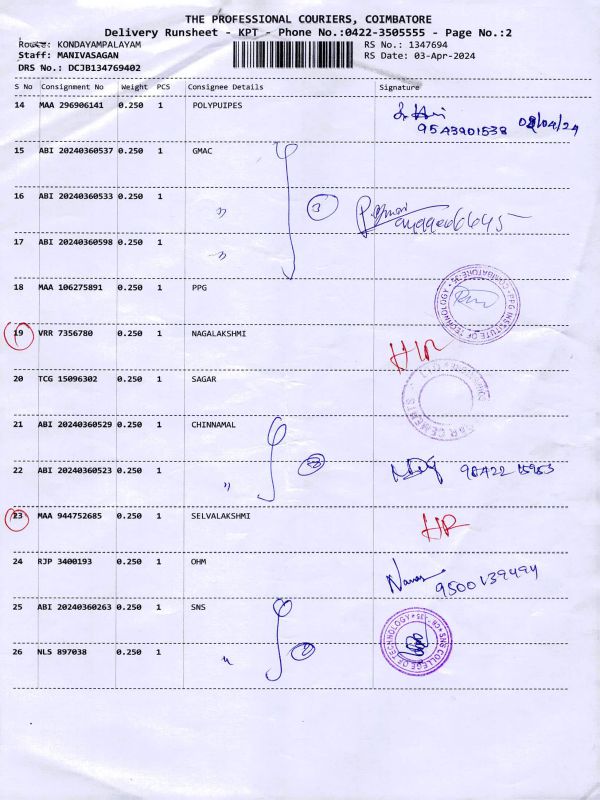 THE PROFESSIONAL COURIERS, COIMBATORE
Delivery Runsheet - KPT - Phone No.:0422-3505555 - Page No.:2
Route: KONDAYAMPALAYAM RS No.: 1347694
Staff: MANIVASAGAN RS Date: 03-Apr-2024
DRS No.: DCJB134769402
S No Consignment No Weight PCS Consignee Details Signature
14 MAA 296906141 0.250 1 POLYPUIPES
9543901538
15 ABI 20240360537 0.250 1 GMAC
16 ABI 20240360533 0.250 1 " 3
17 ABI 20240360598 0.250 1 "
18 MAA 106275891 0.250 1 PPG
PPG INSTITUTE OF TECHNOLOGY
19 VRR 7356780 0.250 1 NAGALAKSHMI
20 TCG 15096302 0.250 1 SAGAR
21 ABI 20240360529 0.250 1 CHINNAMAL
22 ABI 20240360523 0.250 1 " 2
23 MAA 944752685 0.250 1 SELVALAKSHMI HR
24 RJP 3400193 0.250 1 OHM
25 ABI 20240360263 0.250 1 SNS
SNS COLLEGE OF TECHNOLOGY
26 NLS 897038 0.250 1 " 2